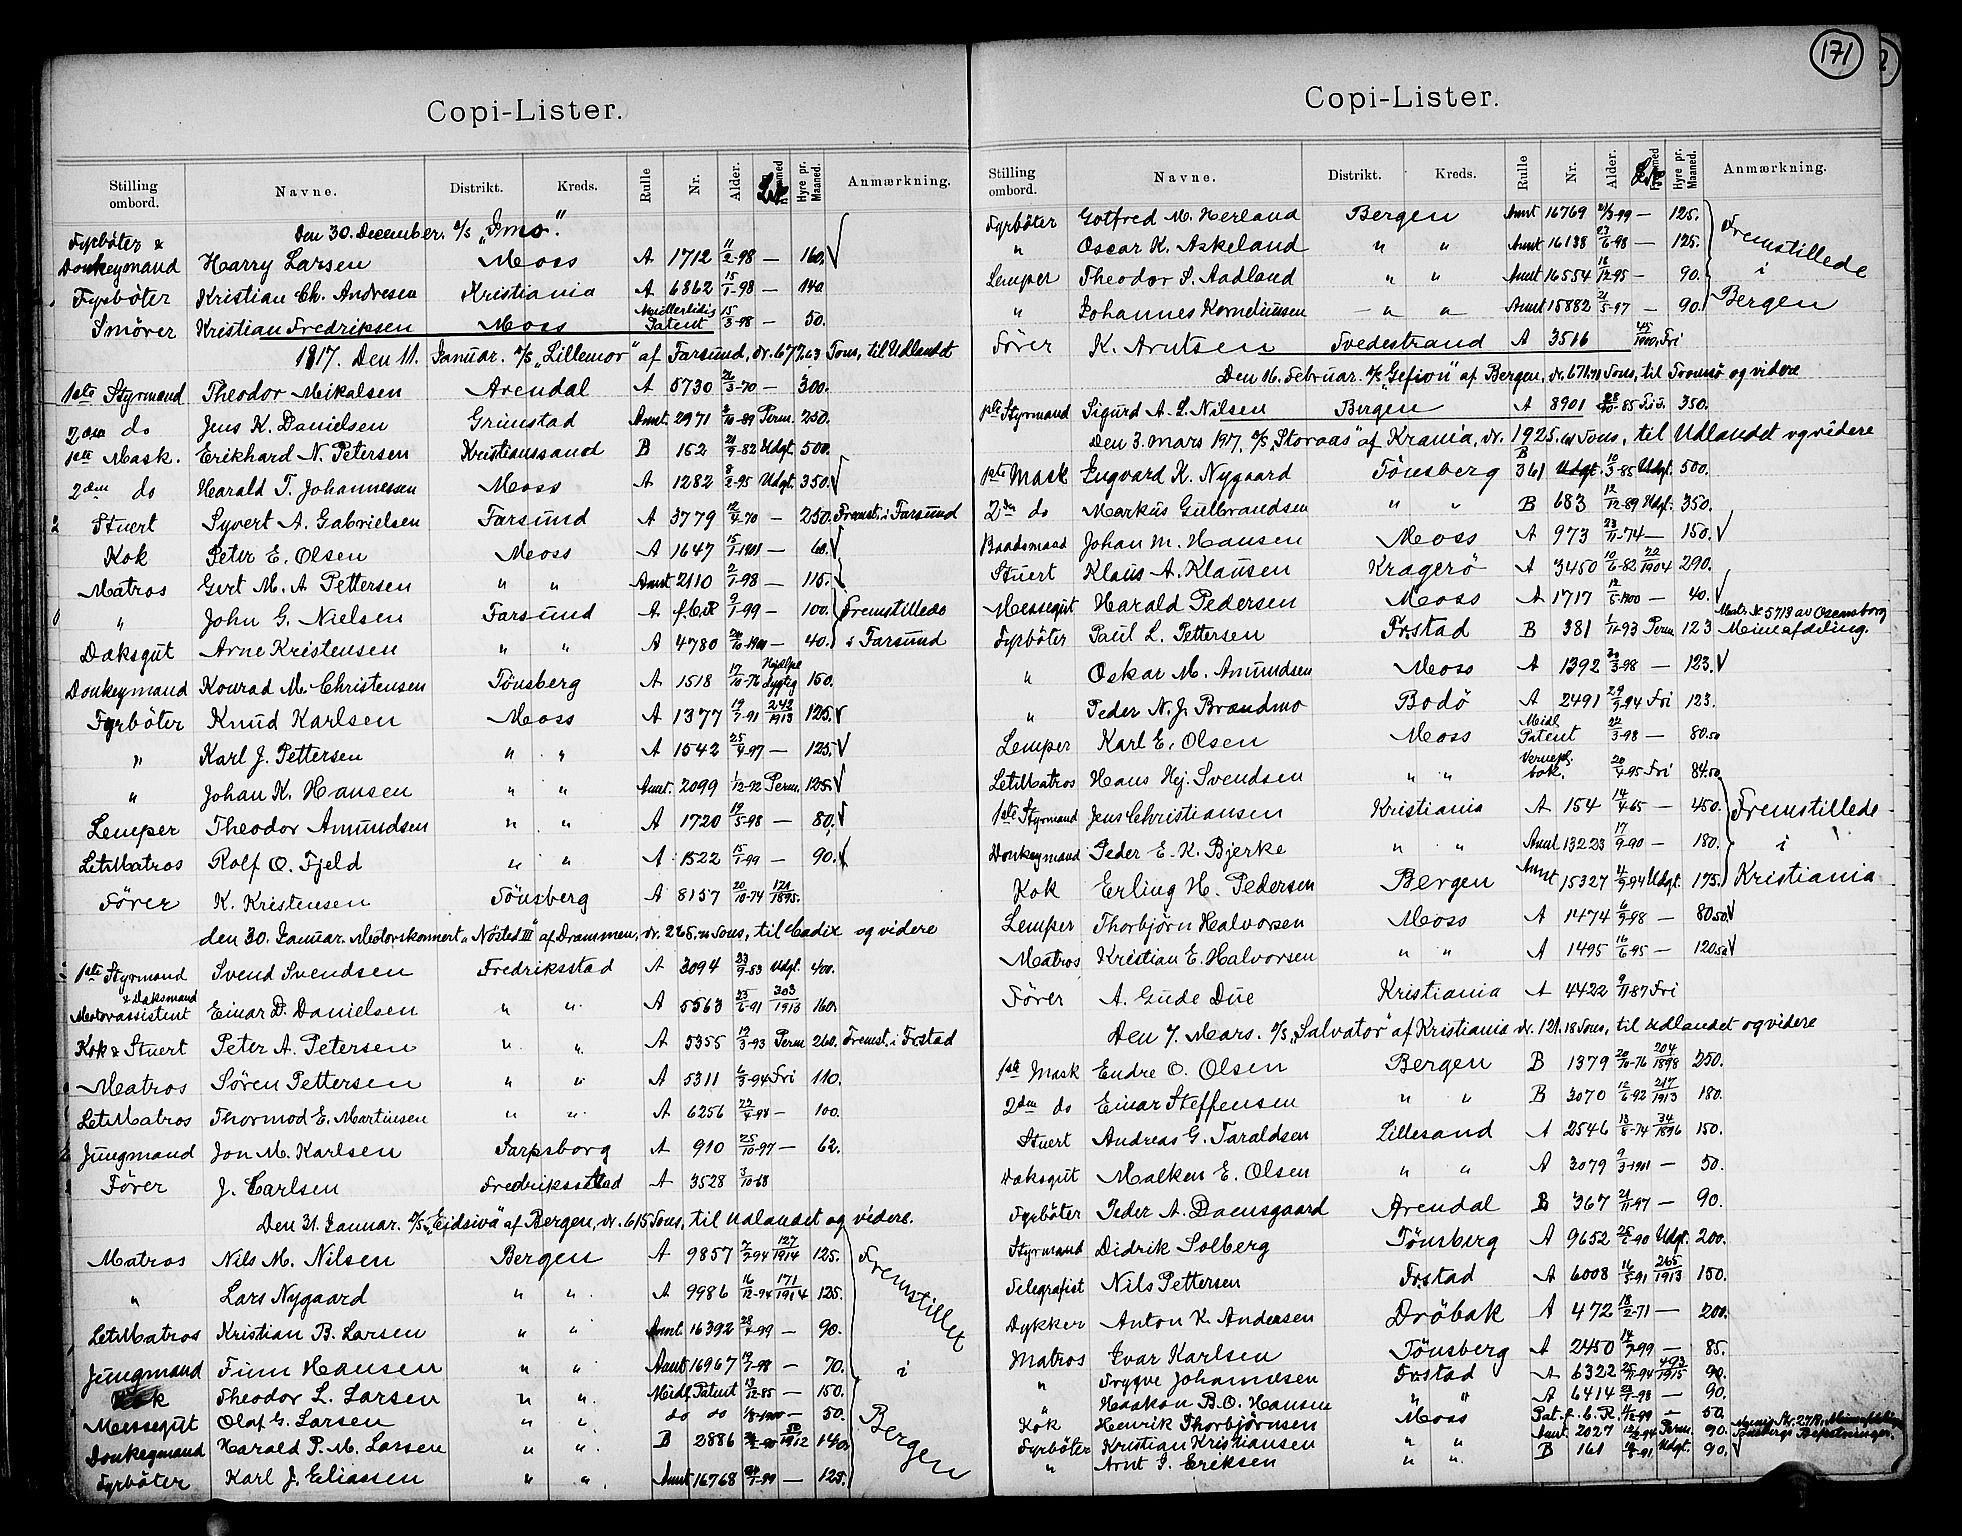 Copi-Lister.
Stilling ombord. Navne. Distrikt. Kreds. Rulle Nr. Alder. Hyre pr. Maaned. Anmærkning.
Den 30. December. "Imo"
Fyrböter &
Donkeymand Harry Larsen Moss A 1712 11/2-98 — 160.
Fyrböter Kristian Ch. Andresen Kristiania A 6862 15/1-98 — 140
Smörer Kristian Fredriksen Moss Patent 15/3-98 — 50.
1917. Den 11. Januar. "Lillemor" af Farsund, dr. 677,63 Tons, til Udlandet
1ste Styrmand Theodor Mikalsen Arendal A 5730 26/3-70 — 300.
2den do Jens K. Danielsen Grimstad Annt. 2971 2/10-89 Perm. 250.
1ste Mask. Erikhard N. Petersen Kristianssand B 152 21/9-82 Udgt. 500.
2den do Harald T. Johannessen Moss A 1282 8/2-95 Udgt. 350.
Stuert Syvert A. Gabrielsen Farsund A 3779 12/4-70 — 250. Fremst. i Farsund
Kok Peter E. Olsen Moss A 1647 15/1-1901 — 60.
Matros Gert M. A Pettersen " " Annt 2110 2/1-98 — 115.
" John G. Nielsen Farsund A 9/1-99 — 100. Fremstillede
Daksgut Arne Kristensen " " A 4780 — 40. i Farsund
Donkeymand Konrad M. Christensen Tönsberg A 1518 17/10-76 150.
Fyrböter Knud Karlsen Moss A 1377 19/7-91 243/1913 125.
" Karl J. Pettersen " " A 1542 25/4-97 — 125.
" Johan K. Hansen " " Annt. 2099 1/12-92 Perm. 125.
Lemper Theodor Amundsen " " A 1720 19/5-98 — 80.
LetMatros Rolf O. Fjeld " " A 1522 15/1-99 — 90.
Förer K. Kristensen Tönsberg A 8157 20/10-74 121/1895.
den 30. Januar. Motorskonnert "Nösted III" af Drammen, dr. Tons, til Cadix og videre
1ste Styrmand Svend Svendsen Fredriksstad A 3094 23/9-83 Udgt. 400.
& Daksmand
Motorassistent Einar D. Danielsen " " A 5563 25/6-91 303/1913 160.
Kok & Stuert Peter A. Petersen " " A 5355 19/3-93 Perm 260. Fremst. i Frstad
Matros Sören Pettersen " " A 5311 6/3-94 Fri 110.
LetMatros Thormod E. Martinsen " " A 6256 22/4-98 — 100.
Jungmand Jon M. Karlsen Sarpsborg A 910 25/10-97 — 62.
Förer J. Carlsen Fredriksstad A 3528 3/10-68
Den 31. Januar. "Eidsiva" af Bergen, dr. 615 Tons, til Udlandet og videre.
Matros Nils M. Nilsen Bergen A 9857 7/7-94 127/1914 125. Fremstillet
" Lars Nygaard " " A 9986 16/12-94 171/1914 125.
LetMatros Kristian B. Larsen " " Annt 16392 28/4-99 — 90.
Jungmand Finn Hansen " " Annt 16967 19/7-98 — 70. i
Kok Theodor L. Larsen " " Midl. Patent 13/12-85 — 150.
Messegut Olaf G. Larsen " " do do — 50. Bergen
Donkeymand Harald P. M. Larsen " " B 2886 140.
Fyrböter Karl J. Eliassen " " Annt 16768 — 125.
171
Copi-Lister.
Stilling ombord. Navne. Distrikt. Kreds. Rulle Nr. Alder. Hyre pr. Maaned. Anmærkning.
Fyrböter Gotfred M. Herland Bergen Annt 16769 21/3-99 — 125. Fremstillede
" Oscar K. Askeland " " Annt 16138 23/6-98 — 125.
Lemper Theodor S. Aadland " " Annt 16554 18/12-95 — 90. i
" Johannes Korneliussen " " Annt 15882 21/5-97 — 90. Bergen
Förer K. Arntsen Tvedestrand A 3516 45/1900. Fri
Den 16. Februar. "Gefion" af Bergen, dr. Tons, til Tromsö og videre
1ste Styrmand Sigurd A. L. Nilsen Bergen A 8901 28/10-85 350.
Den 3. mars 1917, "Storaas" af Krania, dr. 1925. Tons, til Udlandet og videre
1ste Mask Engvard K. Nygaard Tönsberg B 361 Udgt. 10/3-85 Udgt. 500.
2den do Markus Gulbrandsen " " B 683 12/12-89 Udgt. 350.
Baadsmand Johan M. Hansen Moss A 973 23/11-74 — 150.
Stuert Klaus A. Klausen Kragerö A 3450 10/6-82 20/1904 290.
Messegut Harald Pedersen Moss A 1717 12/5-1900 — 40.
Fyrböter Paul L. Pettersen Frstad B 381 1/11-93 Perm 123 Matr. № 5713 av Oscarsborg Mineafdeling.
" Oskar M. Amundsen Moss A 1392 30/3-98 — 123.
" Peder N. J. Brandmo Bodö A 2491 29/9-94 Fri 123.
Lemper Karl E. Olsen Moss Midl. Patent 22/3-98 — 80.50
LetMatros Hans Hj. Svendsen " " Vernepl. bok. 20/4-95 Fri 84.50
1ste Styrmand Jens Christiansen Kristiania A 154 14/4-65 — 450. Fremstillede
Donkeymand Peder E. K. Bjerke " " Annt 13223 17/9-90 — 180. i
Kok Erling H. Pedersen Bergen Annt 15327 4/9-94 Udgt. 175. Kristiania
Lemper Thorbjörn Halvorsen Moss A 1474 6/9-98 — 80.50
Matros Kristian E. Halvorsen " " A 1495 16/6-95 — 120.50
Förer A. Gude Due Kristiania A 4422 9/11-87 Fri
Den 7. Mars. "Salvator" af Kristiania dr. 121.18 Tons, til Udlandet og videre
1ste Mask Endre O. Olsen Bergen B 1379 20/10-76 204/1898 250.
2den do Einar Steffensen " " B 3070 12/6-92 217/1913 180.
Stuert Andreas G. Taraldsen Lillesand A 2546 13/8-74 34/1896 150.
Daksgut Malken E. Olsen " " A 3079 9/3-1901 — 50.
Fyrböter Peder A. Daensgaard Arendal B 367 21/11-97 — 90.
Styrmand Didrik Solberg Tönsberg A 9652 25/6-90 Udgt. 200.
Telegrafist Nils Pettersen Frstad A 6008 16/5-91 265/1913 150.
Dykker Anton K. Andersen Dröbak A 472 18/2-71 — 200.
Matros Ivar Karlsen Tönsberg A 2450 14/7-99 — 85.
" Trygve Johannesen Frstad A 6322 25/11-94 493/1915 90.
" Haakon B. O. Hansen " " A 6414 23/1-98 — 90.
Kok Henrik Thorbjörnsen Moss Pat. f. — 50.
Fyrböter Kristian Kristiansen " " Annt 2027 Perm. 90.
" Arnt J. Eriksen " " B 161 Udgt. 90.